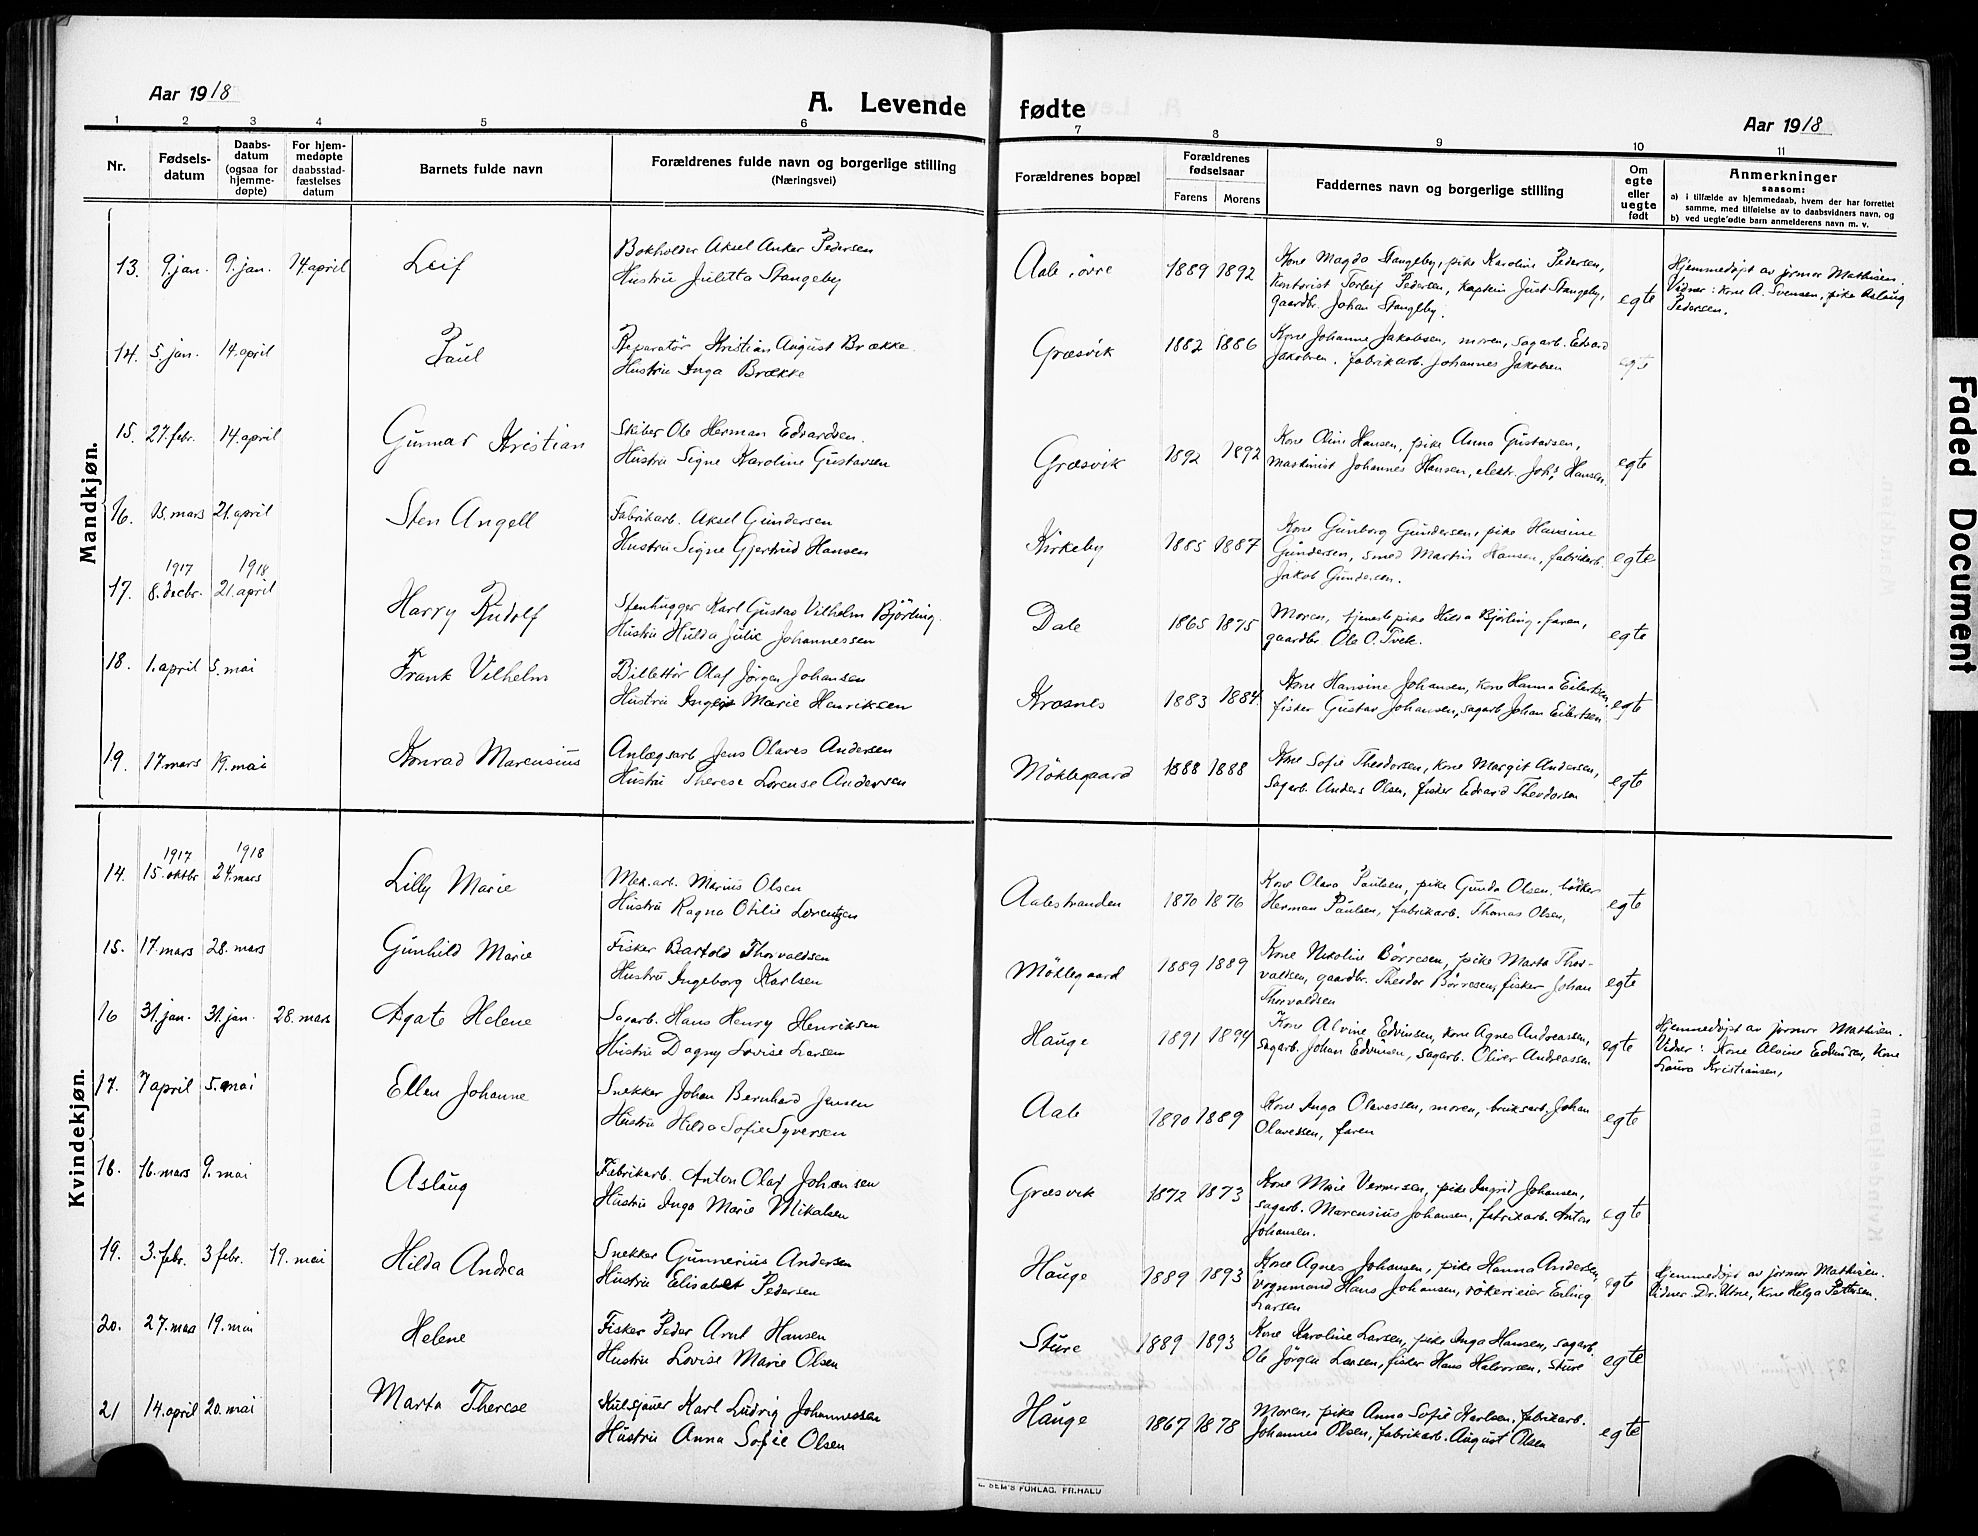 Aar 1918
A. Levende fødte
Aar 1918
1 2 3 4 5 6 7 8 9 10 11
Nr.
Fødsels-
datum
Daabs-
datum
(ogsaa for
hjemme-
døpte)
For hjem-
medøpte
daabsstad-
fæstelses
datum
Barnets fulde navn
Forældrenes fulde navn og borgerlige stilling
(Næringsvei)
Forældrenes bopæl
Forældrenes
fødselsaar
Farens Morens
Faddernes navn og borgerlige stilling
Om
egte
eller
uegte
født
Anmerkninger
saasom:
a) i tilfælde av hjemmedaab, hvem der har forrettet
samme, med tilføielse av to daabsvidners navn, og
b) ved uegtefødte barn anmelderens navn m. v.
Mandkjøn.
13. 9. jan. 9. jan. 14 april Leif
Bokholder Aksel Anker Pedersen
Hustru Julitta Stangeby
Aale øvre 1889 1892
Kone Magda Stangeby, pike Karoline Pedersen,
Kontorist Torleif Pedersen, kaptein Just Stangeby,
gaardbr. Johan Stangeby.
egte
Hjemmedøpt av jormor Mathisen.
Vidner: Kone A. Svensen, pike Aslaug
Pedersen.
14. 5. jan. 14. april Paul
Reparatør Kristian August Brække
Hustru Inga Brække
Græsvik 1882 1886
Kone Johanne Jakobsen, moren, sagarb. Edvard
Jakobsen, fabrikarb. Johannes Jakobsen
egte
15. 27. febr. 14. april Gunnar Kristian
Skiber Ole Herman Edvardsen.
Hustru Signe Karoline Gustavsen
Græsvik 1892 1892
Kone Oline Hansen, pike Anna Gustavsen,
maskinist Johannes Hansen, elektr. Johs. Hansen.
egte
16. 15. mars 21. april Sten Angell
Fabrikarb. Aksel Gundersen
Hustru Signe Gjertrud Hansen
Kirkeby 1885 1887
Kone Gunborg Gundersen, pike Hansine
Gundersen, smed Martin Hansen, fabrikarb.
Jakob Gundersen.
egte
1917 1918
17. 8. decbr. 21. april Harry Rudolf
Stenhugger Karl Gustav Vilhelm Björling.
Hustru Hulda Julie Johannessen
Dale 1865 1875
Moren, tjenestepike Hilda Björling, faren,
gaardbr. Ole O. Tvete.
egte
18. 1. april 5. mai Frank Vilhelm
Billettør Olaf Jørgen Johansen
Hustru Inger Marie Henriksen
Krosnes 1883 1884.
Kone Hansine Johansen, kone Hanna Eilertsen,
fisker Gustav Johansen, sagarb. Johan Eilertsen
egte
19. 17. mars 19. mai Konrad Marcusius
Anlægsarb. Jens Olaves Andersen
Hustru Therese Lorense Andersen
Möklegaard 1888 1888
Kone Sofie Theodorsen, kone Margit Andersen,
Sagarb. Anders Olsen, fisker Edvard Theodorsen
egte
Kvindekjøn.
1917 1918
14. 15. oktbr 24. mars Lilly Marie
Mek.arb. Marius Olsen
Hustru Ragna Otilie Lorentzen
Aalestranden 1870 1876
Kone Olava Paulsen, pike Gunda Olsen, bödker
Herman Paulsen, fabrikarb. Thomas Olsen,
egte
15. 17. mars 28. mars Gunhild Marie
Fisker Bartold Thorvaldsen
Hustru Ingeborg Karlsen
Möklegaard 1889 1889
Kone Nikoline Børresen, pike Marta Thor-
valdsen, gaardbr. Theodor Børresen, fisker Johan
Thorvaldsen
egte
16 31. jan. 31. jan. 28. mars Agate Helene
Sagarb. Hans Henry Henriksen
Hustru Dagny Lovise Larsen
Hauge 1891 1894
Kone Alvine Edvinsen, kone Agnes Andreassen,
sagarb. Johan Edvinsen, sagarb. Oliver Andreassen
egte
Hjemmedøpt av jormor Mathisen.
Vidner: Kone Alvine Edvinsen, kone
Laura Kristiansen,
17. 7 april 5. mai Ellen Johanne
Snekker Johan Bernhard Jensen
Hustru Hilda Sofie Syversen
Aale 1890 1889
Kone Inga Olavessen, moren, bruksarb. Johan
Olavessen, faren
egte
18. 16. mars 9. mai Aslaug
Fabrikarb. Anton Olaf Johansen
Hustru Inga Marie Mikalsen
Græsvik 1872 1873
Kone Marie Vernersen, pike Ingrid Johansen,
sagarb. Marcusius Johansen, fabrikarb. Anton
Johansen.
egte
19. 3. febr. 3 febr. 19. mai Hilda Andrea
Snekker Gunnerius Andersen
Hustru Elisabet Pedersen
Hauge 1889 1893
Kone Agnes Johansen, pike Hanna Andersen,
vognmand Hans Johansen, røkerieier Erling
Larsen
egte
Hjemmedøpt av jormor Mathisen.
Vidner: Dr. Utne, kone Helga Pettersen.
20. 27. mars 19. mai Helene
Fisker Peder Arnt Hansen
Hustru Lovise Marie Olsen
Sture 1889 1893
Kone Karoline Larsen, pike Inga Hansen, sagarb.
Ole Jørgen Larsen, fisker Hans Halvorsen, Sture
egte
21 14. april 20. mai Marta Therese
Kulsjauer Karl Ludvig Johannessen
Hustru Anna Sofie Olsen
Hauge 1867 1878
Moren, pike Anna Sofie Karlsen, fabrikarb.
Johannes Olsen, fabrikarb. August Olsen
egte
SEM'S FORLAG. FR.HALD
Faded Document